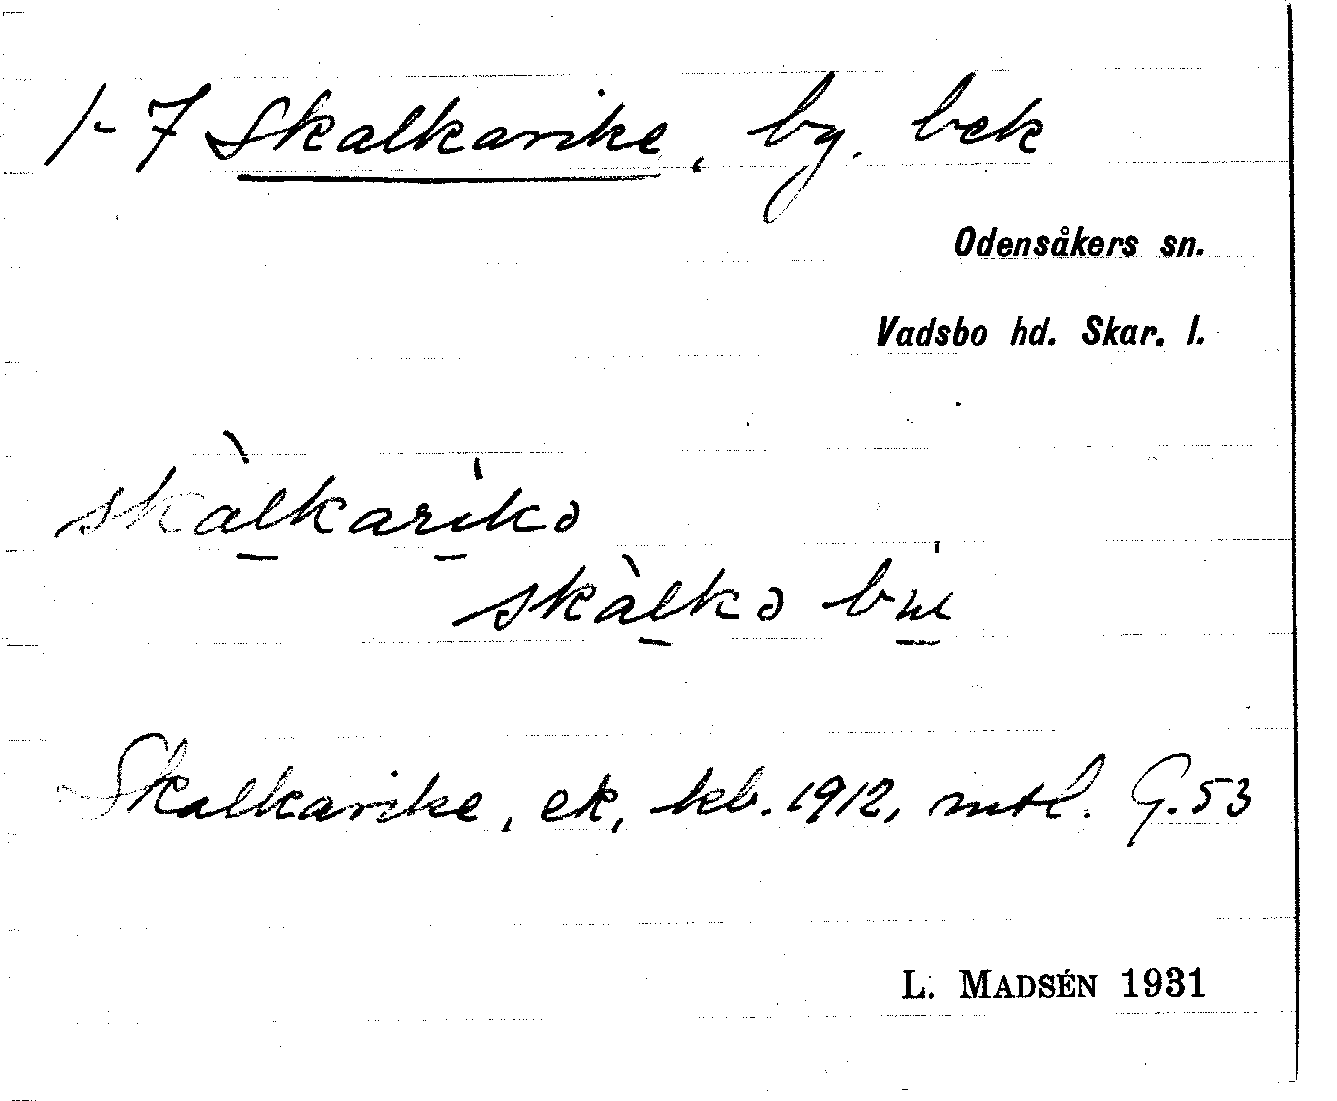 1-7 Skalkarike, by. bek
Odensåkers sn.
Vadsbo hd. Skar. l.
skàlkarikə
skàlkə
Skalkarike, ek, kb. 1912, mtl. G. 53
L. MADSÉN 1931